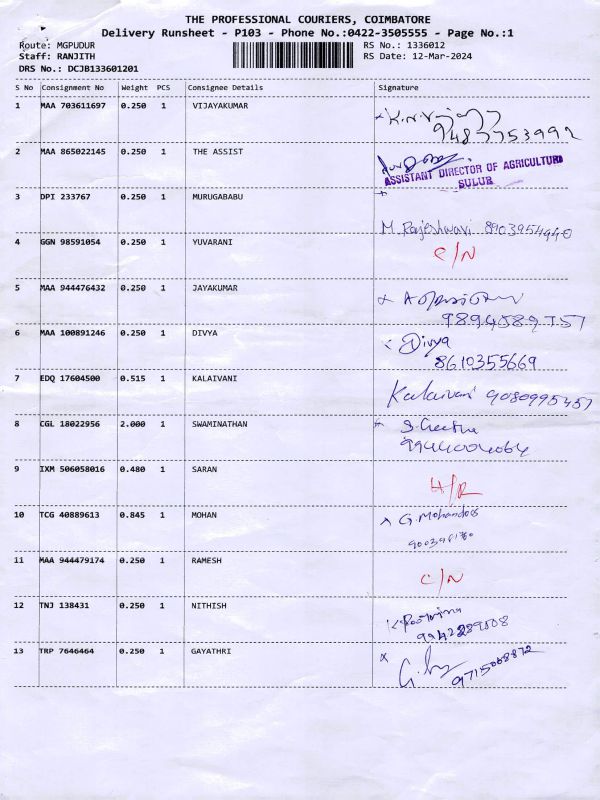 THE PROFESSIONAL COURIERS, COIMBATORE
Delivery Runsheet - P103 - Phone No.:0422-3505555 - Page No.:1
Route: MGPUDUR RS No.: 1336012
Staff: RANJITH RS Date: 12-Mar-2024
DRS No.: DCJB133601201
S No Consignment No Weight PCS Consignee Details Signature
1 MAA 703611697 0.250 1 VIJAYAKUMAR
2 MAA 865022145 0.250 1 THE ASSIST
ASSISTANT DIRECTOR OF AGRICULTURE
SULUR
3 DPI 233767 0.250 1 MURUGABABU
M. Rajeshwari 8903954940
4 GGN 98591054 0.250 1 YUVARANI C/N
5 MAA 944476432 0.250 1 JAYAKUMAR
9894589757
6 MAA 100891246 0.250 1 DIVYA Divya
8610355669
7 EDQ 17604500 0.515 1 KALAIVANI Kalaivani 9080995457
8 CGL 18022956 2.000 1 SWAMINATHAN S. Geetha
9944004064
9 IXM 506058016 0.480 1 SARAN H/R
10 TCG 40889613 0.845 1 MOHAN G. Mohandas
11 MAA 944479174 0.250 1 RAMESH C/N
12 TNJ 138431 0.250 1 NITHISH
13 TRP 7646464 0.250 1 GAYATHRI
9715068872